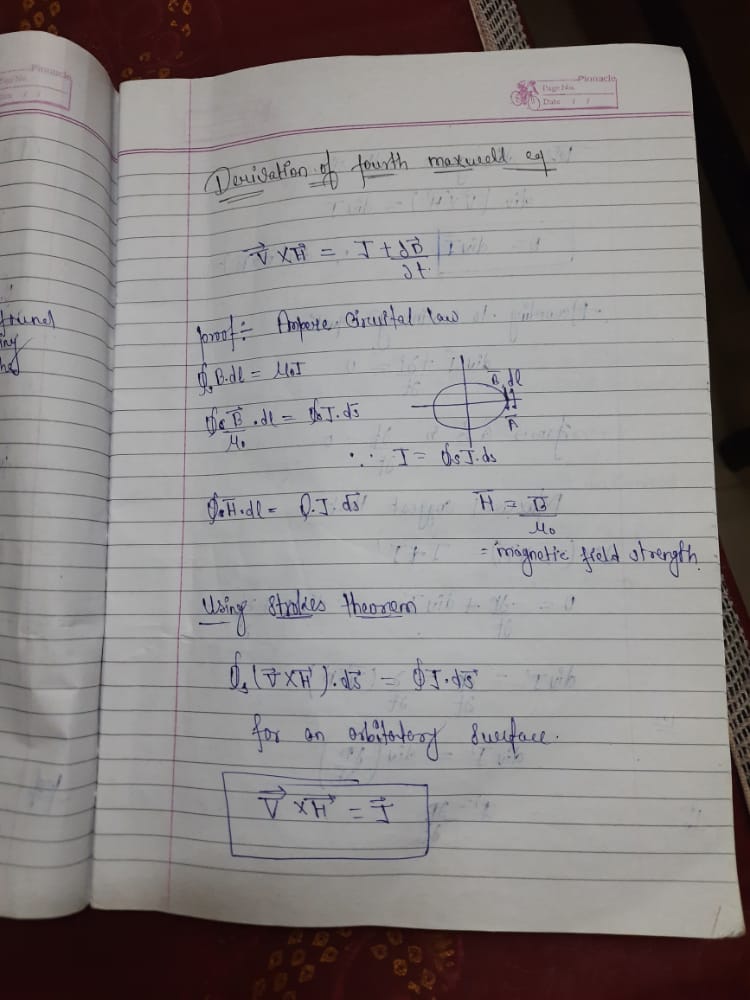 Pinnacle
Pinnacle
Page No.
Date / /
Derivation of fourth maxwell eq :
∇⃗ × H⃗ = J + ∂D⃗/∂t
proof :- Ampere Circuital law
∮ₛ B.dl = μ₀I
∮ₛ B⃗/μ₀ . dl = ∮ₛ J. ds̄
B̄ dl
Ā
∵ I = ∮s J. ds
∮. H̄. dl = ∮. J. ds̄
H̄ = B̄/μ₀
= magnetic field strength.
Using strokes theorem
∮ₛ (∇⃗ × H⃗). ds̄ = ∮ J. ds̄
for an orbitatory surface.
∇⃗ × H⃗ = J⃗